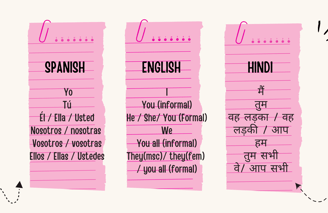 SPANISH
Yo
Tú
Él / Ella / Usted
Nosotros / nosotras
Vosotros / vosotras
Ellos / Ellas / Ustedes
ENGLISH
I
You (informal)
He / She/ You (Formal)
We
You all (informal)
They(msc)/ they(fem)
/ you all (formal)
HINDI
मैं
तुम
वह लड़का / वह
लड़की / आप
हम
तुम सभी
वे/ आप सभी